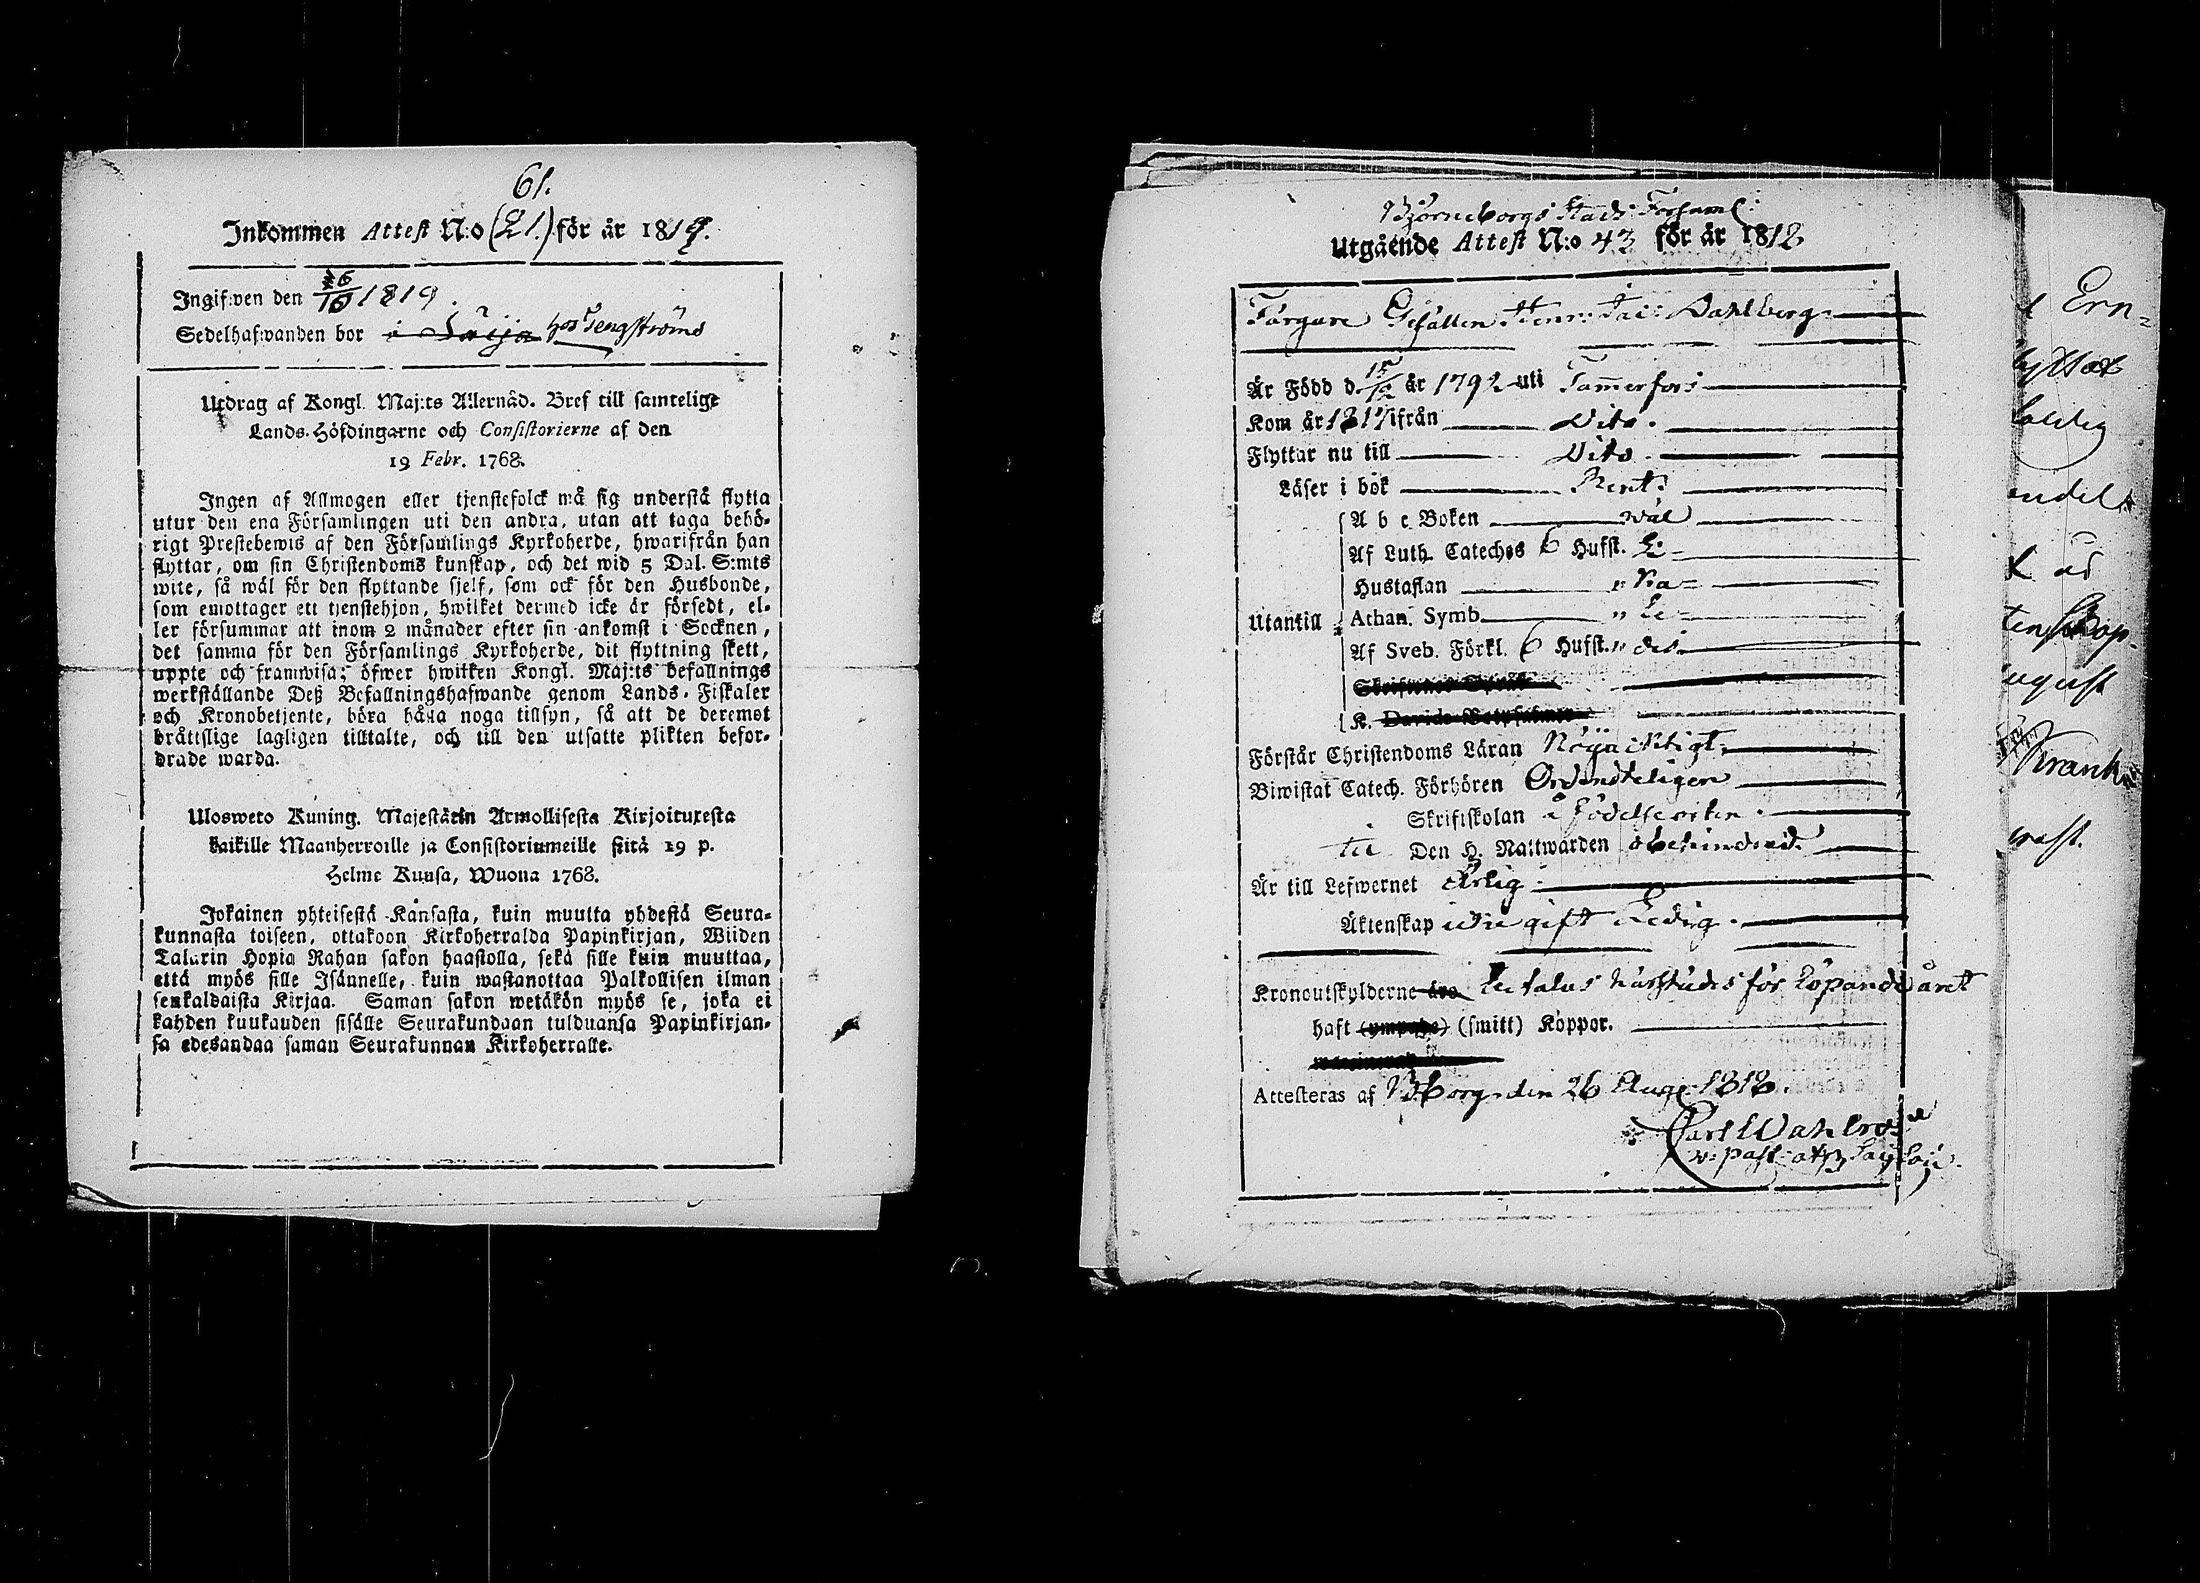 61.
Inkommen Attest N:o (21.) för år 1819.
Ingifwen den 26/10 1819.
Sedelhafwanden bor i hos Tengströms
Utdrag af Kongl. Maj:ts Allernåd. Bref till samtelige
Lands-Höfdingarne och Consistorierne af den
19 Febr. 1768.
Ingen af Allmogen eller tjenstefolck må sig understå flytta
utur den ena Församlingen uti den andra, utan att taga behö-
rigt Prestebewis af den Församlings Kyrkoherde, hwarifrån han
flyttar, om sin Christendoms kunskap, och det wid 5 Dal. S:mts
wite, så wäl för den flyttande sjelf, som ock för den Husbonde,
som emottager ett tjenstehjon, hwilket dermed icke är försedt, el-
ler försummar att inom 2 månader efter sin ankomst i Socknen,
det samma för den Församlings Kyrkoherde, dit flyttning skett,
uppte och framwisa; öfwer hwilken Kongl. Maj:ts befallnings
werkställande Deß Befallningshafwande genom Lands-Fiskaler
och Kronobetjente, böra hålla noga tillsyn, så att de deremot
bråttslige lagligen tilltalte, och till den utsatte plikten befor-
drade warda.
Ulosweto Kuning. Majestätin Armollisesta Kirjoituxesta
kaikille Maanherroille ja Consistoriumeille siitä 19 p.
Helme Kuusa, Wuona 1768.
Jokainen yhteisestä Kansasta, kuin muutta yhdestä Seura-
kunnasta toiseen, ottakoon Kirkoherralda Papinkirjan, Wiiden
Talarin Hopia Rahan sakon haastolla, sekä sille kuin muuttaa,
että myös sille Isännelle, kuin wastanottaa Palkollisen ilman
senkaldaista Kirjaa. Saman sakon wetäkön myös se, joka ei
kahden kuukauden sisälle Seurakundaan tulduansa Papinkirjan-
sa edesandaa saman Seurakunnan Kirkoherralle.
Björneborgs Stads Församl:
Utgående Attest N:o 43 för år 1818
Färgare Gesällen Henr: Dahlberg
Är Född d. 15/2 år 1792 uti Tammerfors
Kom år 1817 ifrån Dito.
Flyttar nu till Dito
Läser i bok Rent.
A b c Boken wäl
Af Luth. Cateches 6 Hufst.
Hustaflan
Utantill Athan. Symb.
Af Sveb. Förkl. 6 Hufst.
K.
Förstår Christendoms Läran Nöjacktigt.
Biwistat Catech. Förhören Ordenteligen
Skriftskolan å födelseorten.
till Den H. Nattwarden obehindrad.
Är till Lefwernet Ärlig
Äktenskap icke gift Ledig.
Kronoutskylderne betalas härstädes för löpande året
haft (smitt) Koppor.
Attesteras af Bborg den 26 Aug. 1818.
Carl Wahlroos
v: past:
Ern-